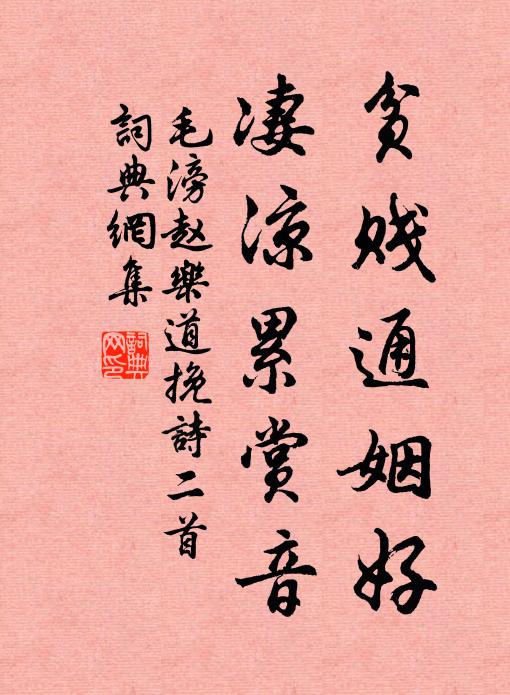 贫贱通姻好
凄凉累赏音
毛滂赵樂道挽詩二首
詞典網集
詞典网印